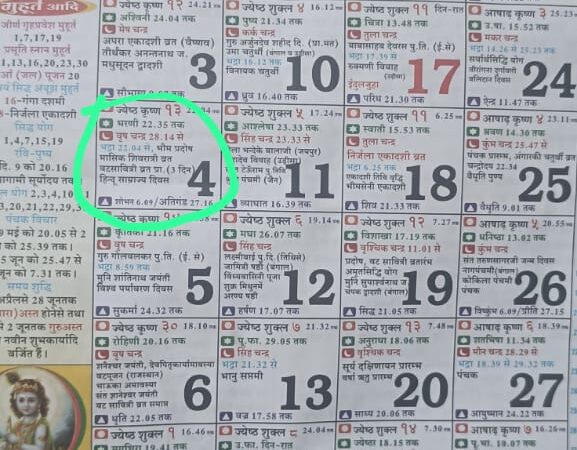 मुहूर्त आदि
जीर्ण गृहप्रवेश मुहूर्त
1,7,17,19
प्रसूति स्नान मुहूर्त
1,13,16,20,23,30
(जल) पूजन 20
सिद्ध मुहूर्त
16-गंगा दशमी
8-निर्जला एकादशी
सिद्ध योग
1,4,7,15,19
रवि-पुष्य
दि. 9 को 20.16
गामी सूर्योदय तक
योग 2,3,4,10,1
3,20,21,22,29,3
पंचक विचार
मई को 20.05 से 2
को 25.39 तक।
जून को 25.47 से
जून को 7.31 तक।
समय शुद्धि
अप्रैलसे 28 जूनतक
अस्त होनेसे तथा
2 जूनतक गुरुअस्त
नवीन शुभकार्यादि
वर्जित हैं।
ज्येष्ठ कृष्ण १२ 24.21
अश्विनी 24.04 तक
मेष चन्द्र
अपरा एकादशी व्रत (वैष्णव)
तीर्थंकर अनन्तनाथ ज.
मधुसूदन द्वादशी
3
ज्येष्ठ कृष्ण १३
भरणी 22.35 तक
वृष चन्द्र 28.14 से
भद्रा 22.04 से, भौम प्रदोष
मासिक शिवरात्रि व्रत
वटसावित्री व्रत प्रा. (3 दिन)
हिन्दू साम्राज्य दिवस
4
शोभन 6.09/अतिगंड 27.16
ज्येष्ठ कृष्ण
कृतिका 21.16 तक
वृष चन्द्र
गुरु गोलवलकर पु. ति. (ई. से)
भद्रा 8.59 तक
मुनि शांतिनाथ जयंती
विश्व पर्यावरण दिवस
5
सुकर्मा 24.32 तक
ज्येष्ठ कृष्ण ३० 18.10
रोहिणी 20.16 तक
वृष चन्द्र
शनेश्चर जयंती, देवपितृकार्यामावस्या
वटपूजन (राजस्थान)
भावुका अमावस्या
संत ज्ञानेश्वर जयंती
वट सावित्री व्रत समाप्त
6
धृति 22.05 तक
ज्येष्ठ शुक्ल १ 16.46
मृगशिरा 19.41 तक
ज्येष्ठ शुक्ल ४ 16.12
पुष्य 21.34 तक
कर्क चन्द्र
गुरु अर्जुनदेव शहीद दि. (प्रा.मत)
उमा चतुर्थी (बंगाल व उड़ीसा)
भद्रा 16.12 तक
विनायक चतुर्थी
10
ध्रुव 16.40 तक
ज्येष्ठ शुक्ल ५ 17.24
आश्लेषा 23.33 तक
सिंह चन्द्र 23.33 से
11
व्याघात 16.39 तक
ज्येष्ठ शुक्ल ६ 19.14
मघा 26.07 तक
सिंह चन्द्र
जामित्री षष्ठी (बंगाल)
विंध्यवासिनी पूजा
अरण्य षष्ठी
12
हर्षण 17.07 तक
ज्येष्ठ शुक्ल ७ 21.32
पू.फा. 29.05 तक
सिंह चन्द्र
भद्रा 21.32 से
भानु सप्तमी
13
वज्र 17.58 तक
ज्येष्ठ शुक्ल ८ 24.04
उ.फा. दिन-रात
ज्येष्ठ शुक्ल ११ दिन-रात
चित्रा 13.48 तक
तुला चन्द्र
बाबासाहब देवरस पु.ति. (ई.से)
भद्रा 17.39 से
रुक्मणी विवाह
(उड़ीसा)
ईदुलजुहा
17
परिघ 21.30 तक
ज्येष्ठ शुक्ल ११ 6.25
स्वाती 15.53 तक
तुला चन्द्र
निर्जला एकादशी व्रत
भद्रा 6.25 तक
भीमसेनी एकादशी
18
शिव 21.33 तक
ज्येष्ठ शुक्ल १२ 7.27
विशाखा 17.19 तक
वृश्चिक चन्द्र 11.01 से
प्रदोष, वट सावित्री व्रतारंभ
अमृतसिद्धि योग
मुनि सुपार्श्वनाथ ज.
चंपक द्वादशी (बंगाल)
19
सिद्ध 21.05 तक
ज्येष्ठ शुक्ल १३ 7.48
अनुराधा 18.06 तक
वृश्चिक चन्द्र
सूर्य दक्षिणायन प्रारम्भ
वर्षा ऋतु प्रारम्भ
20
साध्य 20.06 तक
ज्येष्ठ शुक्ल १४ 7.30
ज्येष्ठा 18.15 तक
आषाढ़ कृष्ण ३ 25.23
उ.षा. 15.52 तक
मकर चन्द्र
भद्रा 14.26 से 25.23 तक
सर्वार्थसिद्धि योग
वीरांगना दुर्गावती
बलिदान दिवस
24
ऐन्द्र 11.47 तक
आषाढ़ कृष्ण ४ 23.11
श्रवण 14.30 तक
कुंभ चन्द्र 25.47 से
पंचक प्रारम्भ, अंगारकी चतुर्थी व्रत
चन्द्रोदय 22.34
वैधृति पुण्य
25
वैधृति 9.01 तक
आषाढ़ कृष्ण ५ 20.55
धनिष्ठा 13.02 तक
कुंभ चन्द्र
नागपंचमी (बंगाल)
कोकिला पंचमी
पंचक
26
विष्कुंभ 6.09/प्रीति 27.15
आषाढ़ कृष्ण ६ 18.39
शतभिषा 11.34 तक
मीन चन्द्र 28.29 से
भद्रा 18.39 से 29.32 तक
पंचक
27
आयुष्मान 24.22 तक
आषाढ़ कृष्ण ७ 16.26
पू.भा. 10.07 तक